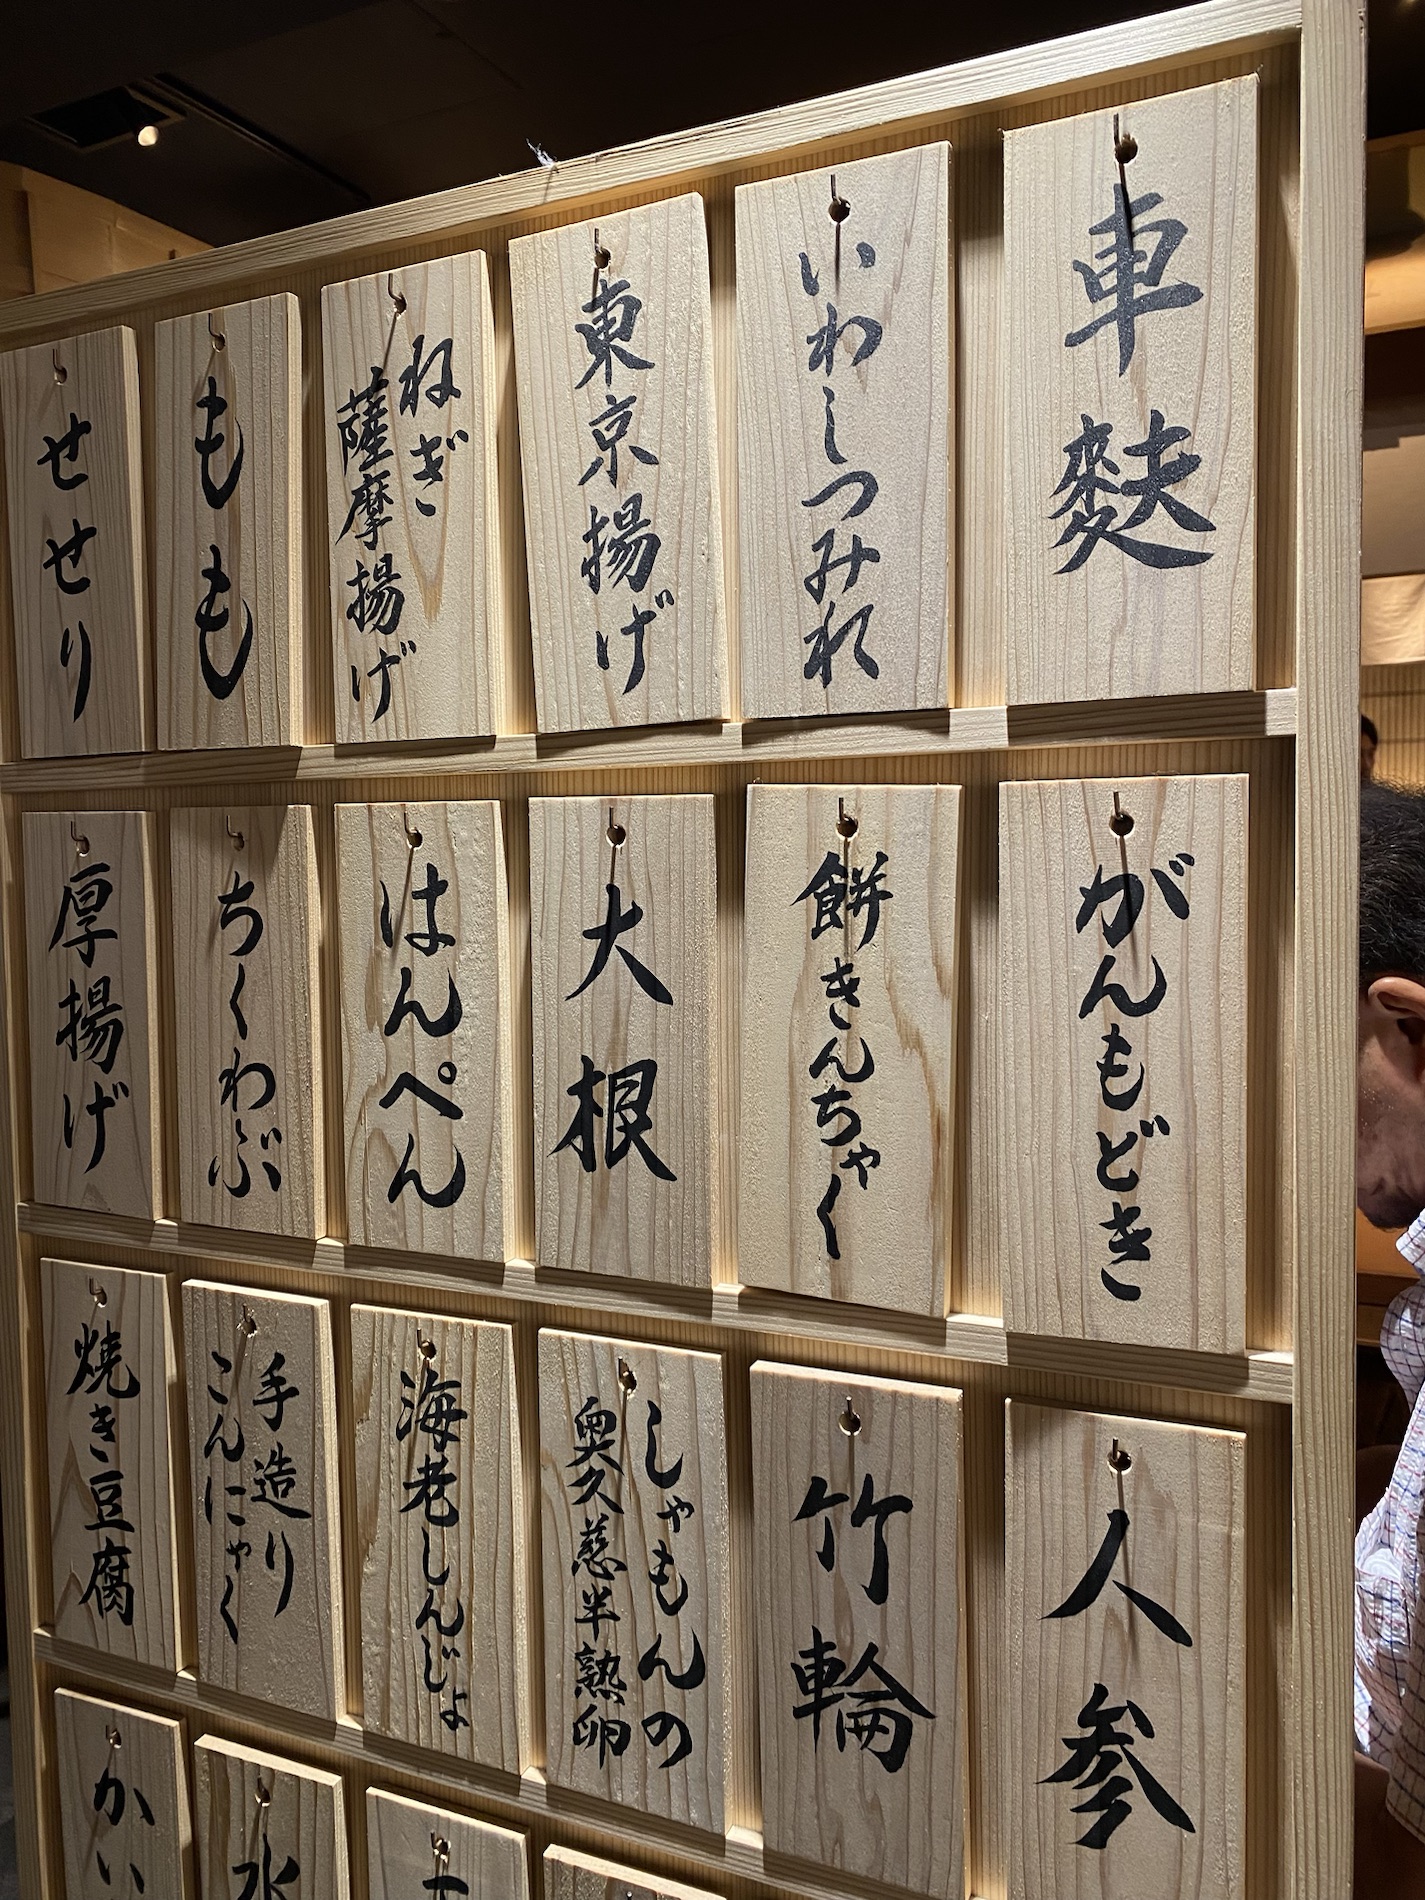 車麩
いわしつみれ
東京揚げ
ねぎ
薩摩揚げ
もも
せせり
がんもどき
餅きんちゃく
大根
はんぺん
ちくわぶ
厚揚げ
人参
竹輪
しゃもんの
奥久慈半熟卵
海老しんじょ
手造り
こんにゃく
焼き豆腐
水
かい